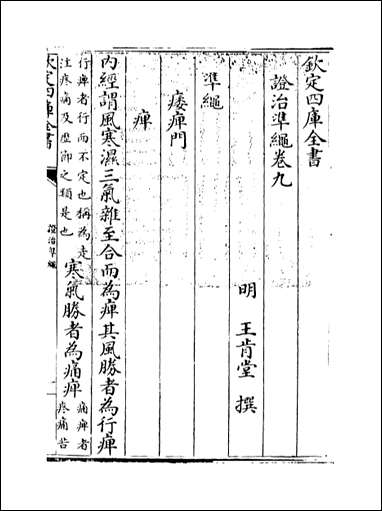 欽定四庫全書
證治準繩卷九
明 王肯堂 撰
準繩
痿痺門
痺
內經謂風寒濕三氣雜至合而為痺其風勝者為行痺
行痺者行而不定也稱為走
注疼痛及歷節之類是也
寒氣勝者為痛痺
痛痺者
疼痛苦
欽定四庫全書
證治準繩